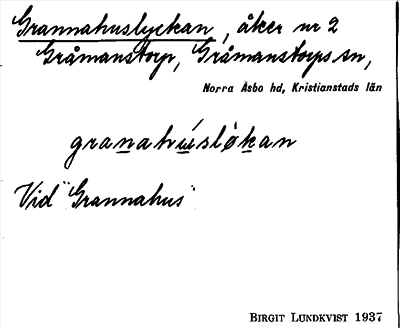 Grannahuslyckan, åker nr 2
Gråmanstorp, Gråmanstorps sn,
Norra Åsbo hd, Kristianstads län
granahúslökan
Vid "Grannahus"
BIRGIT LUNDKVIST 1937